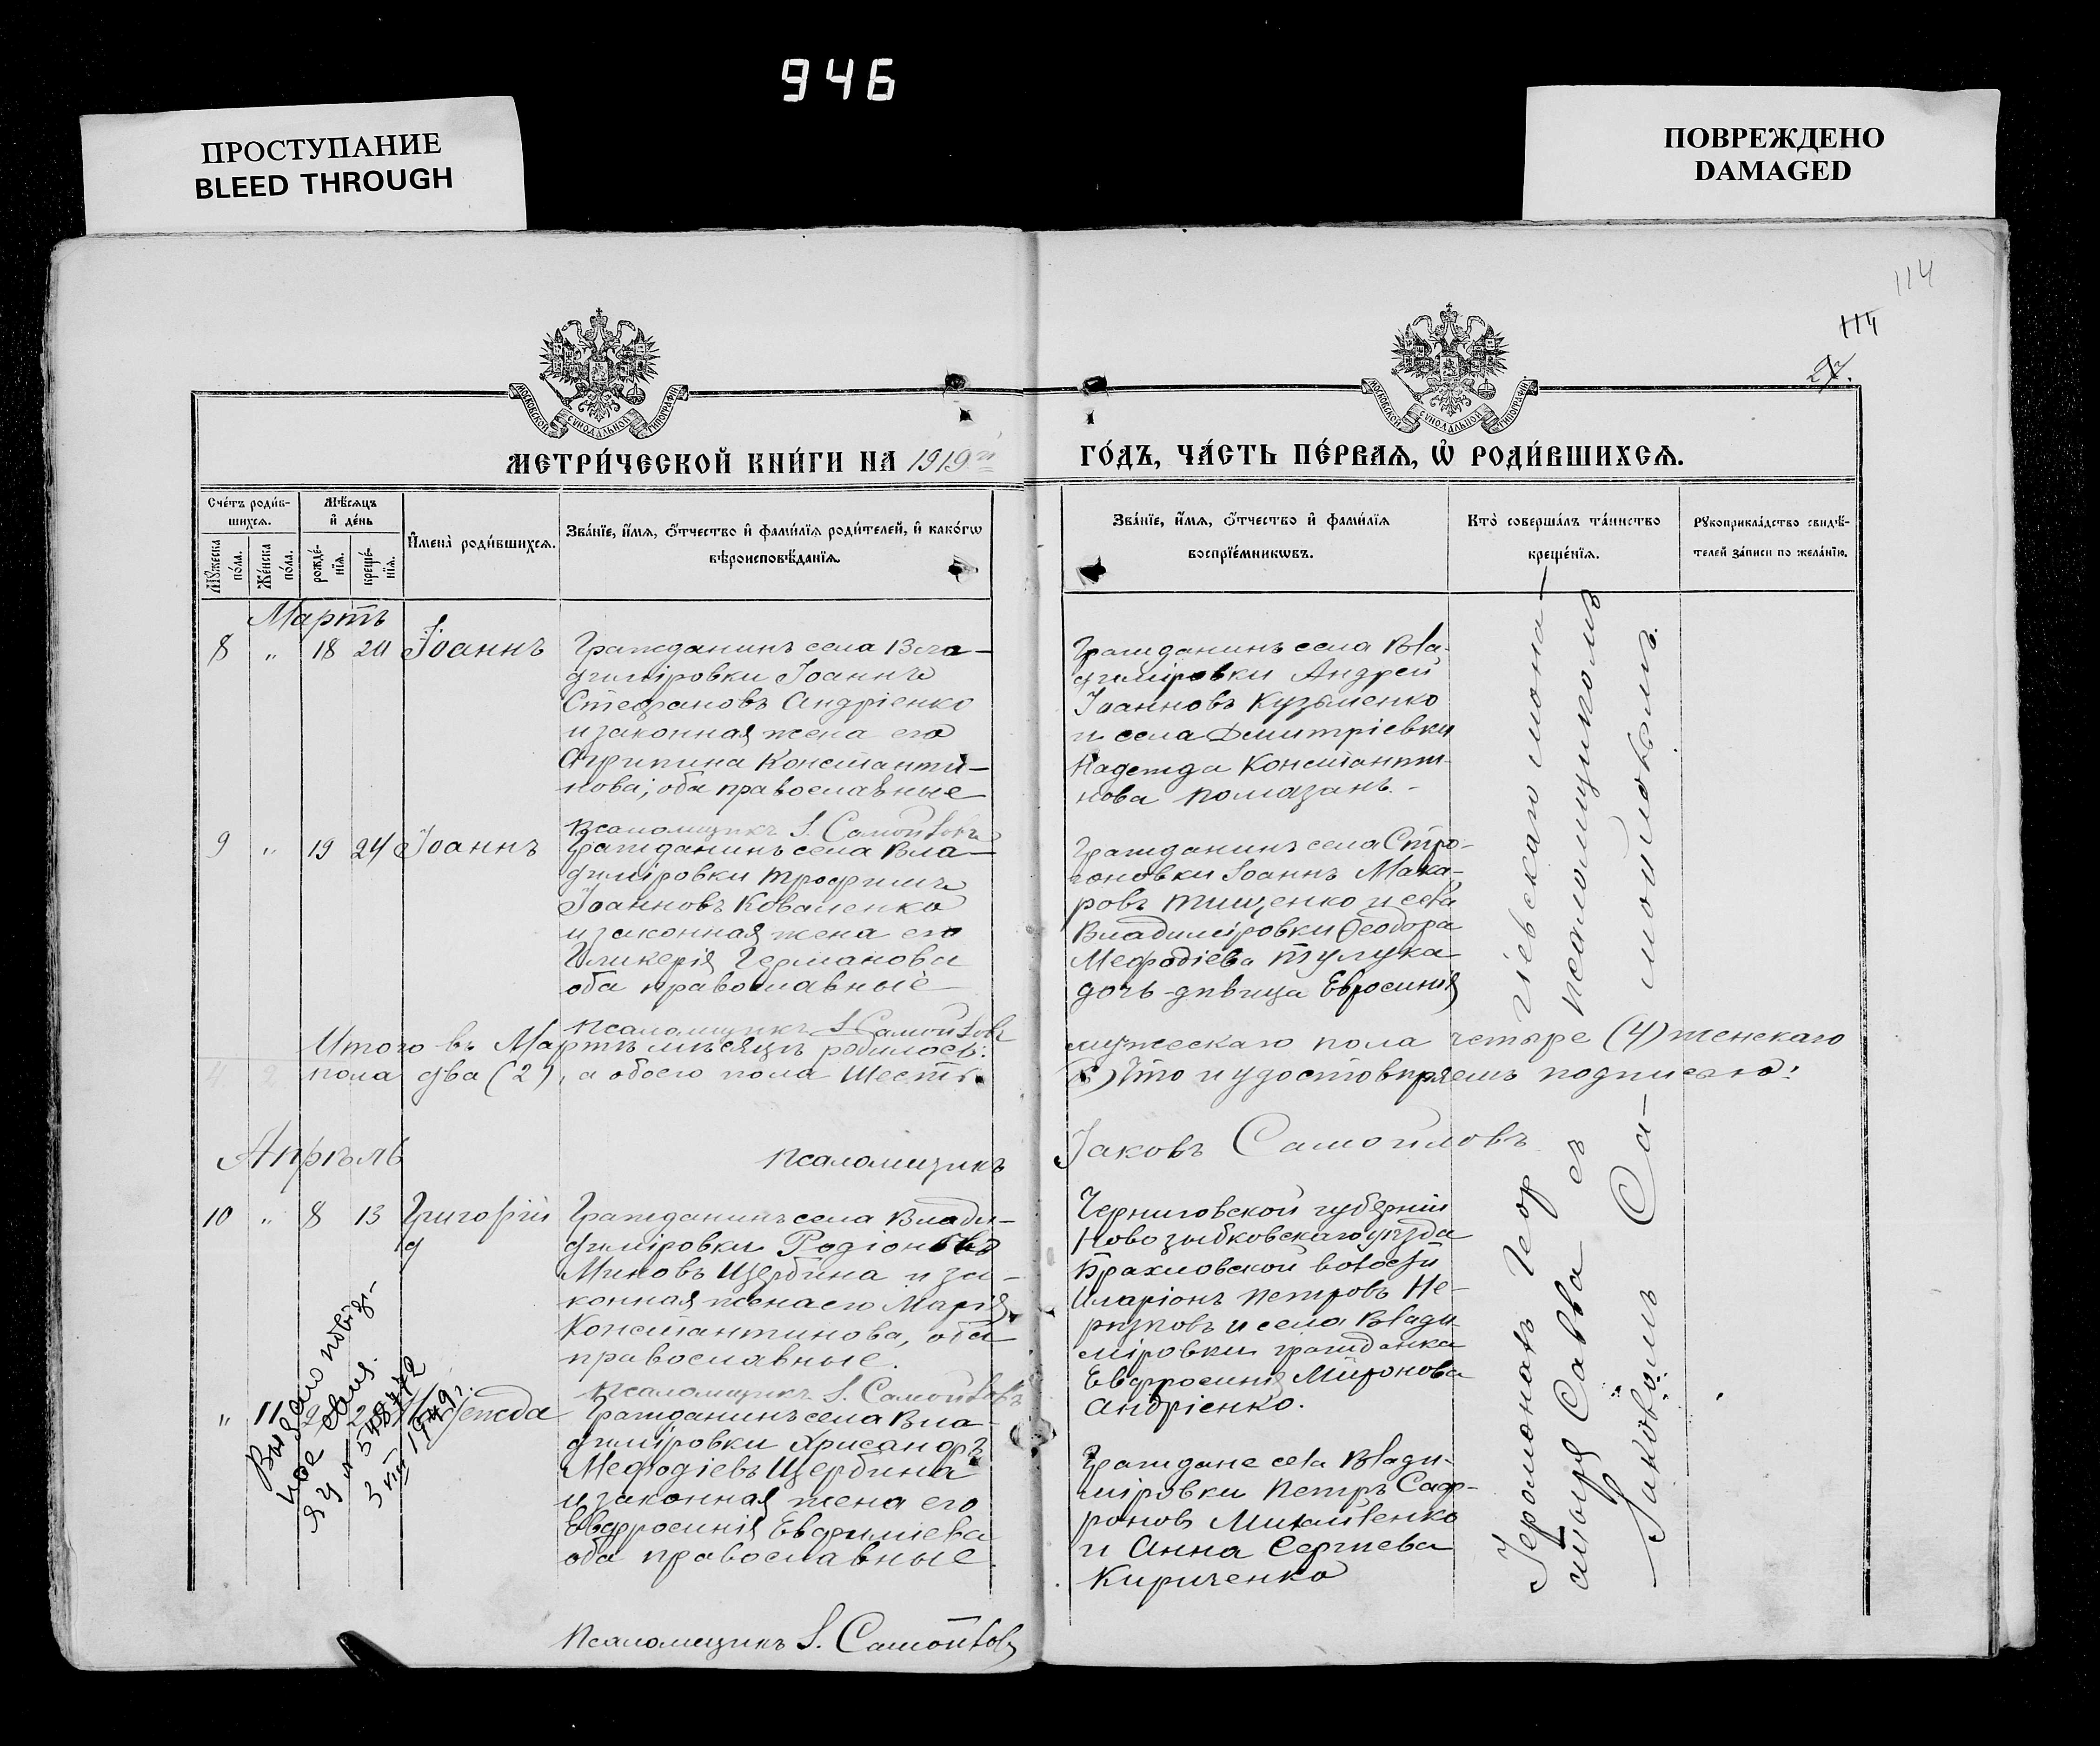 946
ПРОСТУПАНИЕ
BLEED THROUGH
ПОВРЕЖДЕНО
DAMAGED
114
114
МОСКОВСКОЙ СѴНОДАЛЬНОЙ ТИПОГРАФІИ
МОСКОВСКОЙ СѴНОДАЛЬНОЙ ТИПОГРАФІИ
МЕТРИ́ЧЕСКОЙ КНИ́ГИ НА 1919й
ГО́ДЪ, ЧА́СТЬ ПЕ́РВАЯ, Ѡ҆ РОДИ́ВШИХСЯ.
Сче́тъ роди́в-
шихся.
Мѣ́сяцъ
и҆ де́нь
Мꙋ́жеска
по́ла.
Же́нска
по́ла.
рожде́-
нїя.
креще́-
нїя.
И҆мена̀ роди́вшихся.
Зва́нїе, и҆́мя, ѻ҆́тчество и҆ фами́лїя роди́телей, и҆ како́гѡ
вѣроисповѣ́данїя.
Зва́нїе, и҆́мя, ѻ҆́тчество и҆ фами́лїя
воспрїе́мникѡвъ.
Кто̀ соверша́лъ та́инство
креще́нїя.
Рꙋкоприкла́дство свидѣ́-
телей за́писи по жела́нїю.
Мартъ
8 " 18 24 Іоаннъ
Гражданинъ села Вла-
диміровки Іоаннъ
Стефановъ Андріенко
и законная жена его
Агрипина Константи-
нова; оба православные
Псаломщикъ І. Самойловъ
Гражданинъ села Вла-
диміровки Андрей
Іоанновъ Кузьменко
и села Дмитріевки
Надежда Константи-
нова Помазанъ.
9 " 19 24 Іоаннъ
Гражданинъ села Вла-
диміровки Трофимъ
Іоанновъ Коваленко
и законная жена его
Гликерія Германова
оба православные
Псаломщикъ І. Самойловъ
Гражданинъ села Стро-
гоновки Іоаннъ Мака-
ровъ Тищенко и села
Владиміровки Ѳеодора
Мефодіева Тулупа
дочь-дѣвица Евросинія
Итого въ Мартѣ мѣсяцѣ родилось: мужескаго пола четыре (4) женскаго
4 2 пола два (2), а обоего пола шесть (6) Что и удостовѣряемъ подписью:
Псаломщикъ Іаковъ Самойловъ
Апрѣль
10 " 8 13 Григорій
Гражданинъ села Влади-
диміровки Родіонъ
Миновъ Щербина и за-
конная жена его Марія
Константинова, оба
православные.
Псаломщикъ І. Самойловъ
Черниговской губерніи
Новозыбковскаго уѣзда
Брахловской волости
Иларіонъ Петровъ Не-
и села Влади-
міровки гражданка
Евфросинія Миронова
Андріенко.
" 11 Надежда
Гражданинъ села Вла-
диміровки Хрисанфъ
Мефодіевъ Щербина
и законная жена его
Евфросинія Евфиміева
оба православные.
Псаломщикъ І. Самойловъ
Граждане села Влади-
міровки Петръ Саф-
роновъ Михайленко
и Анна Сергіева
Кириченко
Іеромонахъ Геор
гіевскаго мона-
стыря Савва съ
псаломщикомъ
Іаковомъ Са-
мойловымъ.
Видано
1949 г.